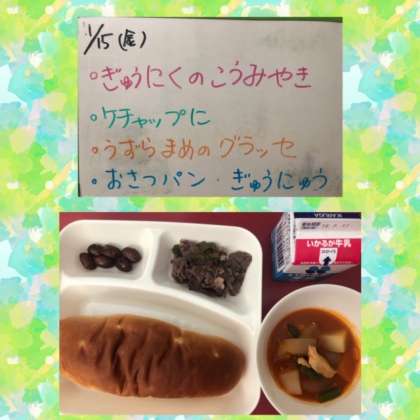 1/15(金)
・ぎゅうにくのこうみやき
・ケチャップに
・うずらまめのグラッセ
・おさつパン・ぎゅうにゅう
いかるが牛乳